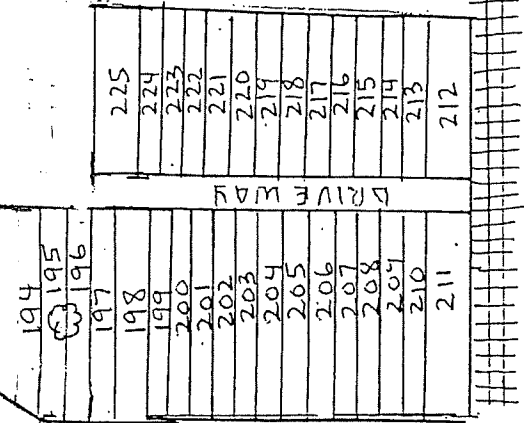 225
224
223
222
221
220
219
218
217
216
215
214
213
212
DRIVEWAY
194
195
196
197
198
199
200
201
202
203
204
205
206
207
208
209
210
211